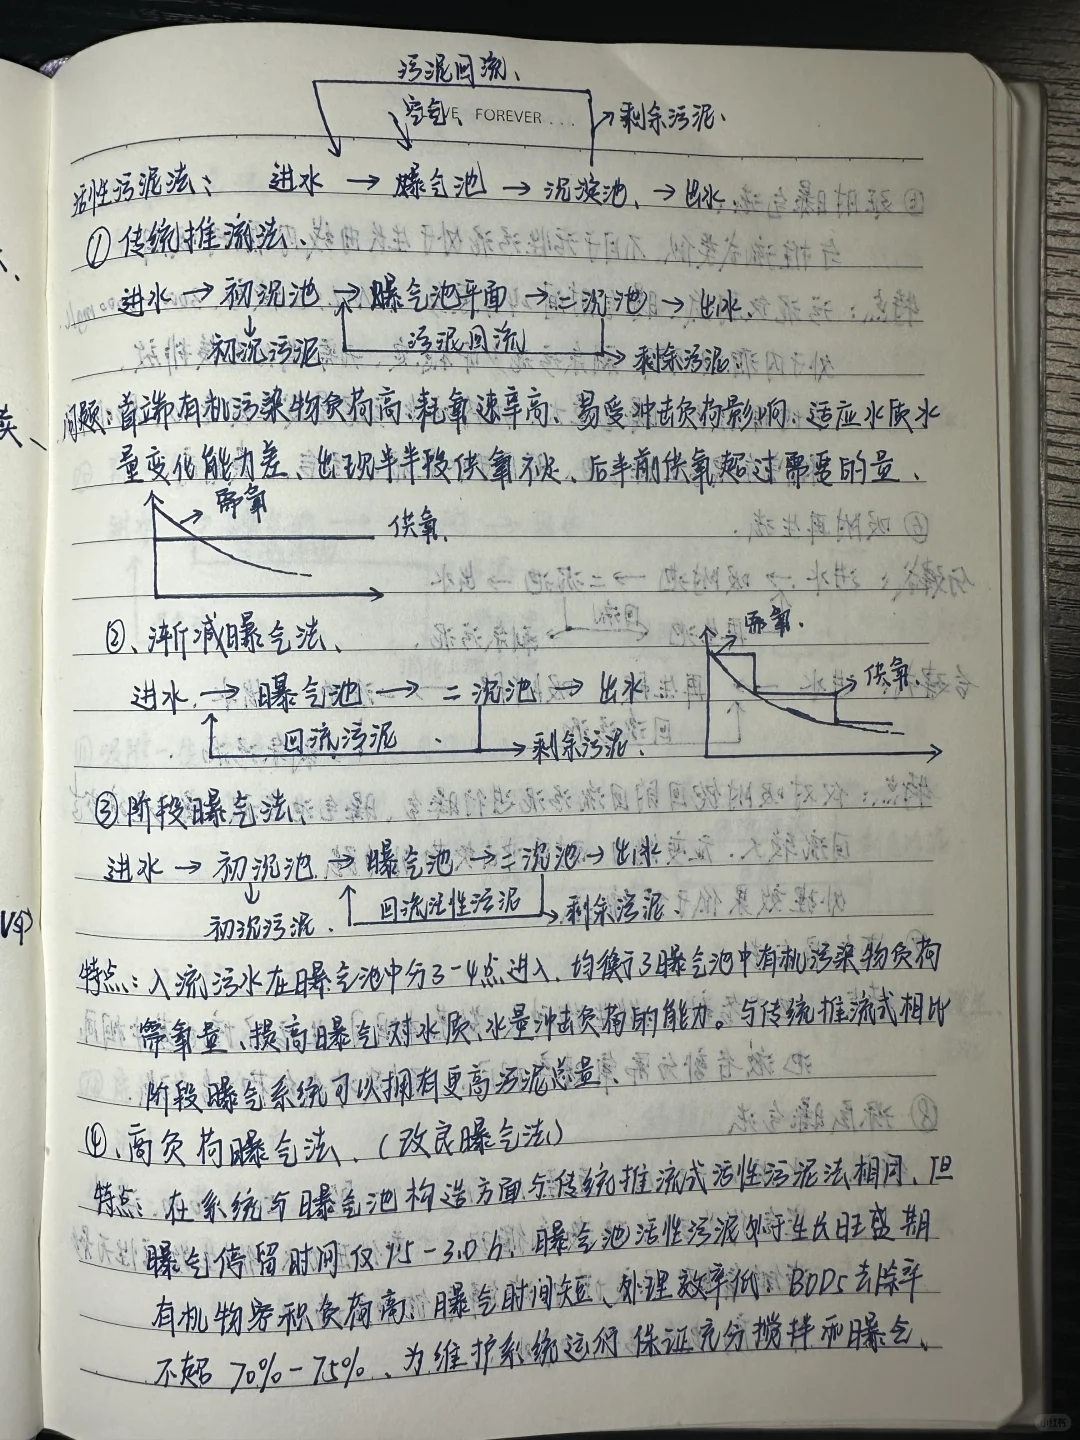 污泥回流、
空气、 VE FOREVER ... 剩余污泥.
活性污泥法: 进水 → 曝气池 → 沉淀池、→ 出水、
① 传统推流法、
进水 → 初沉池 → 曝气池平面 → 二沉池 → 出水、
初沉污泥 污泥回流 剩余污泥
问题:首端有机污染物负荷高、耗氧速率高、易受冲击负荷影响、适应水质水
量变化能力差、出现半半段供氧不足、后半前供氧超过需要的量、
需氧
供氧、
②、渐减曝气法、
需氧.
进水 → 曝气池 → 二沉池 → 出水
供氧、
回流污泥 . 剩余污泥.
③ 阶段曝气法、
进水 → 初沉池 → 曝气池 → 二沉池 → 出水
初沉污泥. 回流活性污泥 剩余污泥
特点:入流污水在曝气池中分3-4点进入、均衡了曝气池中有机污染物负荷
需氧量、提高曝气对水质、水量冲击负荷的能力。与传统推流式相比
阶段曝气系统可以拥有更高污泥总量、
④、高负荷曝气法、(改良曝气法)
特点:在系统与曝气池构造方面与传统推流式活性污泥法相同、但
曝气停留时间仅1.5-3.0h、曝气池活性污泥处于生长旺盛期
有机物容积负荷高、曝气时间短、处理效率低、BOD5去除率
不超70%-75%、为维护系统运行 保证充分搅拌和曝气、
小红书